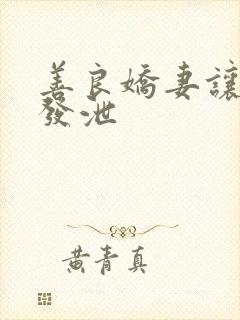 善良嬌妻讓
發泄
黃青真